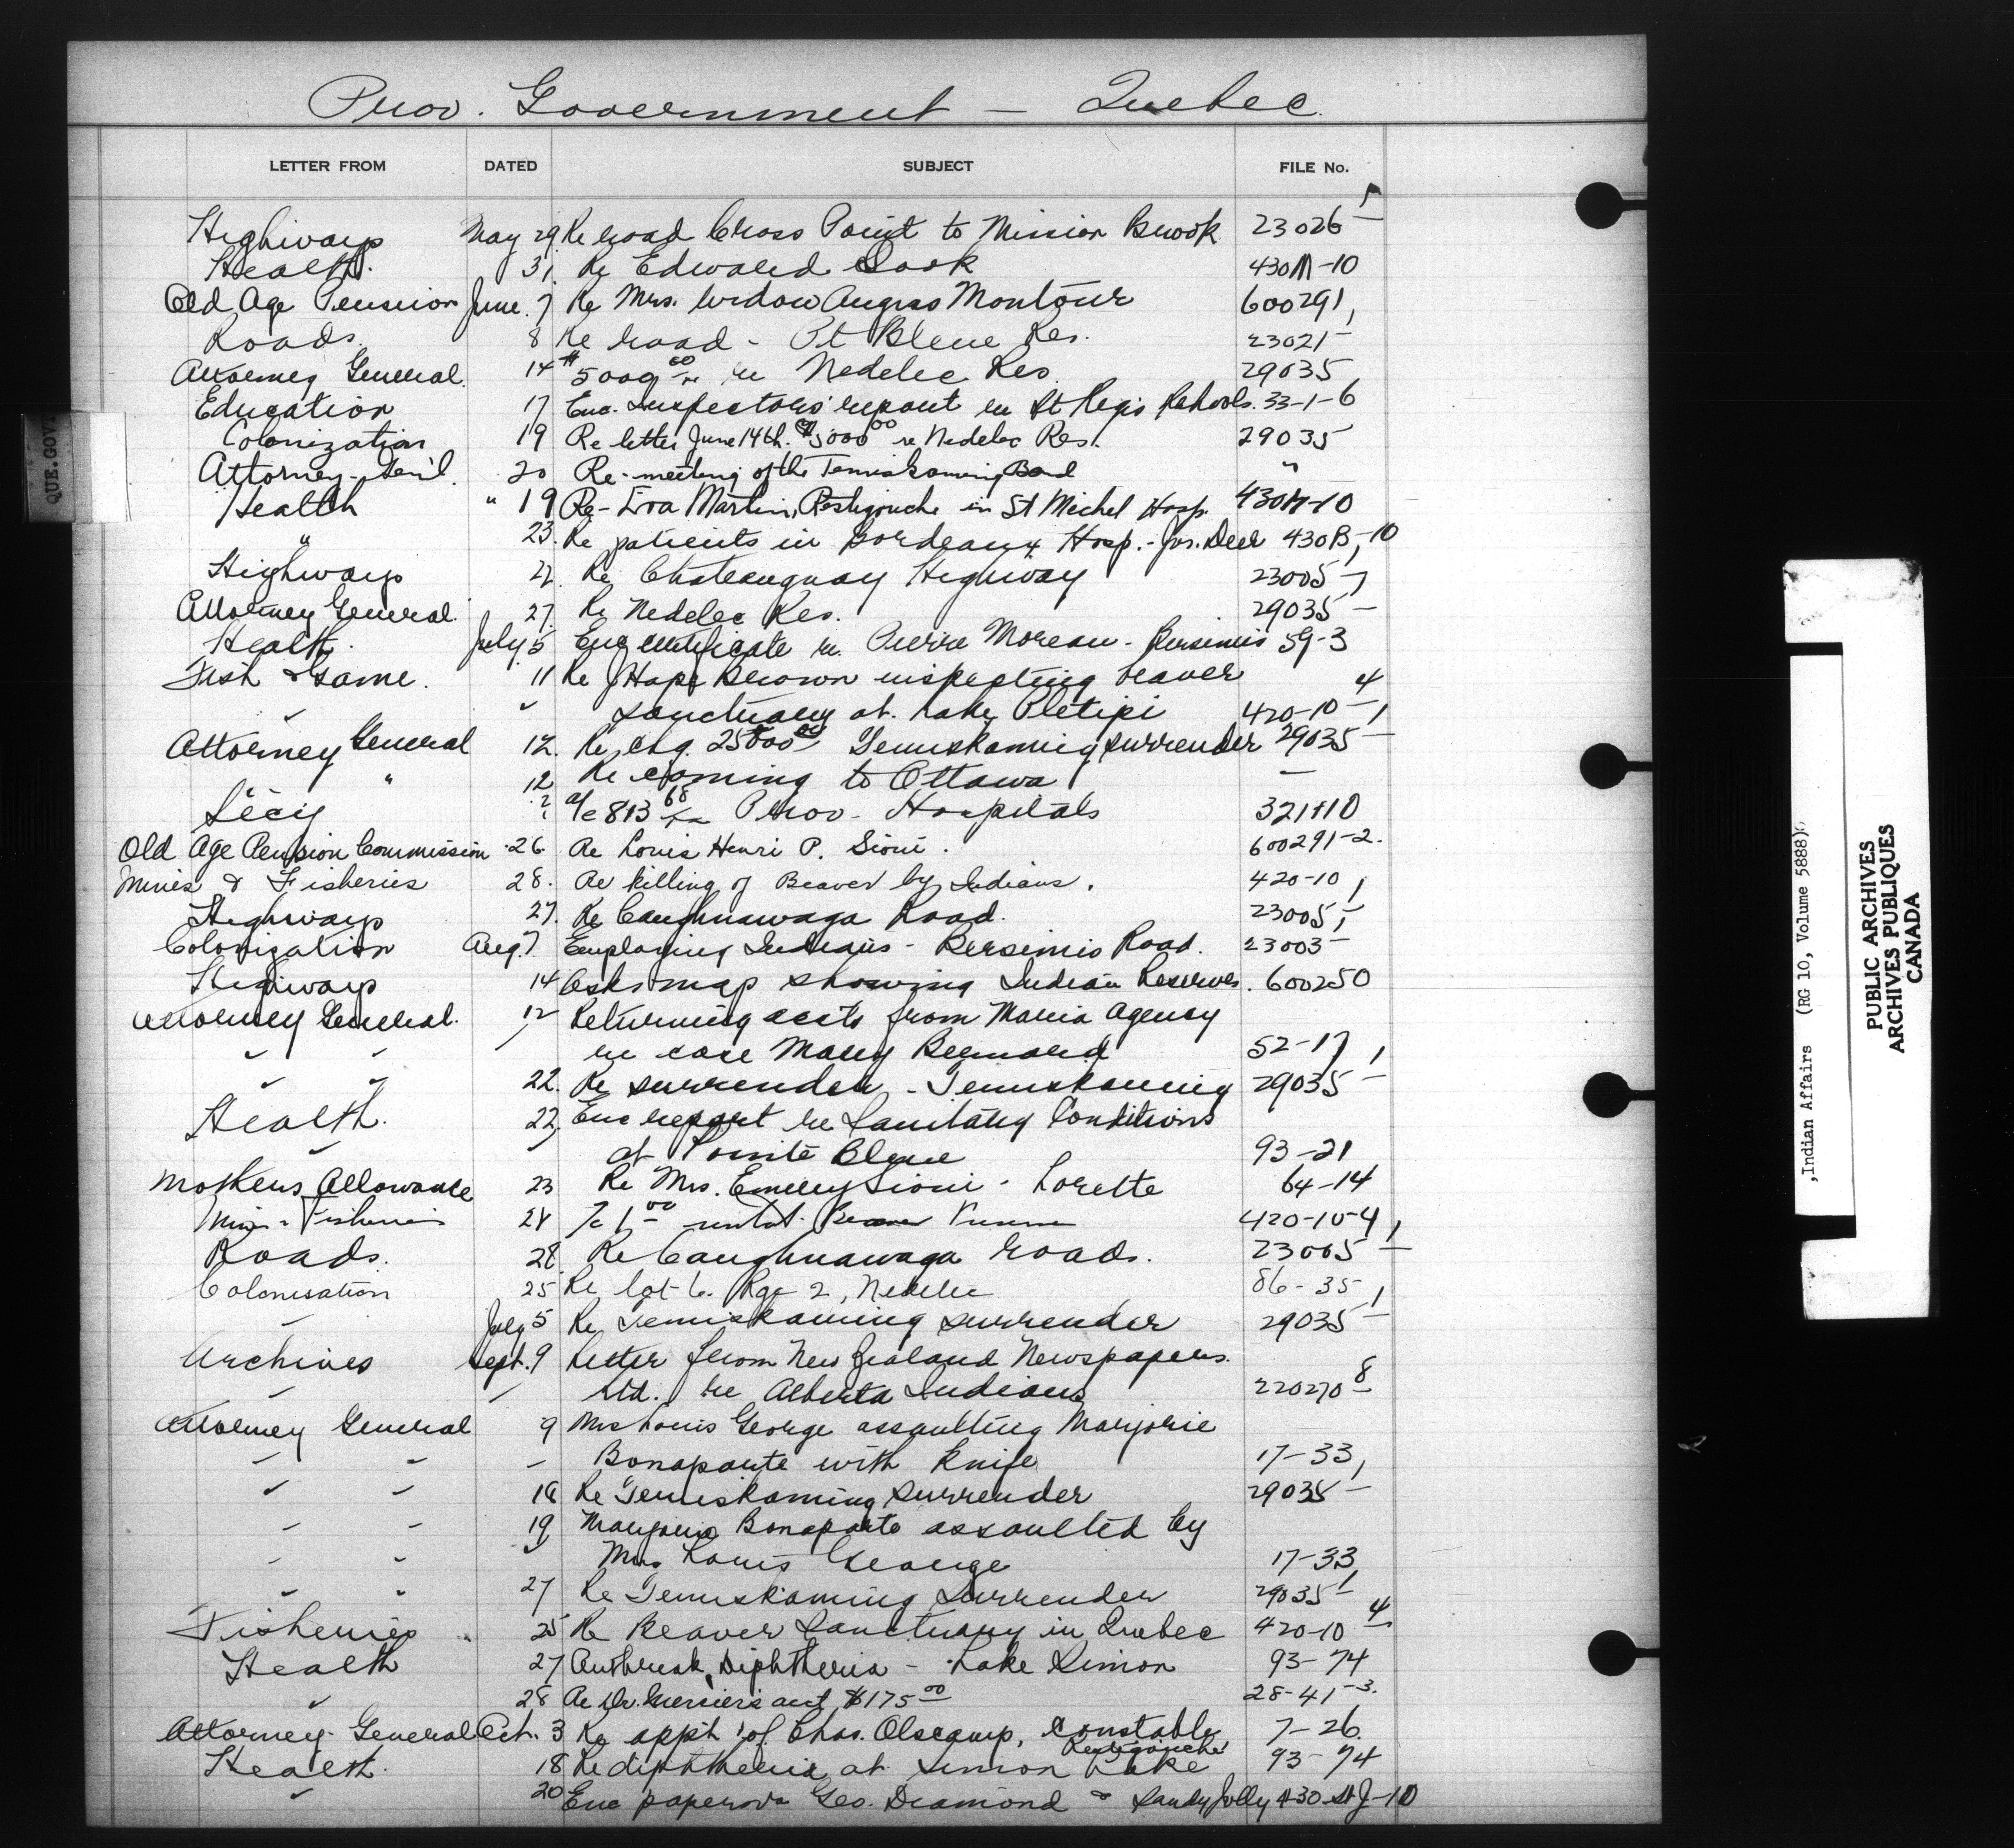 Prov. Government — Quebec.
LETTER FROM DATED SUBJECT FILE No.
Highways May 29. Re road Cross Point to Mission Brook 23026-5
Health. 31. Re Edward Cook 430M-10
Old Age Pension June. 7 Re Mrs. Widow Angus Montour 600291,
Roads. 8 Re road - Pt Bleue Res. 23021-
Attorney General. 14 $5000 00/xx re Nedelec Res 29035
Education 17 Enc. Inspectors' report re St Regis Schools. 33-1-6
Colonization 19 Re letter June 14th. $5000 00 re Nedelec Res. 29035
Attorney-Gen'l. 20 Re-meeting of the Temiskaming Band "
Health " 19 Re-Eva Martin, Restigouche in St Michel Hosp. 430M-10
" 23. Re patients in Bordeaux Hosp.- Jos. Deer 430B,-10
Highways 22. Re Chateauguay Highway 23005-7
Attorney General. 27. Re Nedelec Res. 29035-
Health. July 5 Enc certificate re. Pierre Moreau - Bersimis 59-3
Fish & Game. 11 Re J Hope Brown inspecting beaver
" " sanctuary at. Lake Pletipi 420-10-4,
Attorney General 12. Re chq. 25000 00 Temiskaming surrender 29035-
" 12 Re coming to Ottawa -
Sec'y ? a/c 813 68/xx Prov- Hospitals 321-110
Old Age Pension Commission 26 Re Louis Henri P. Sioui. 600291-2.
Mines & Fisheries 28. Re killing of Beaver by Indians. 420-10,
Highways 27. Re Caughnawaga Road. 23005,-
Colonization Aug. 7. Employing Indians - Bersimis Road. 23003-
Highways 14 Asks map showing Indian Reserves. 600250
Attorney General. 12 Returning accts from Maria Agency
" " " re case Mary Bernard 52-17,
" " 22. Re surrender - Temiskaming 29035-
Health. 22, Enc report re Sanitary Conditions
" " at Pointe Bleue 93-21
Mothers Allowance 23 Re Mrs. Emery Sioui - Lorette 64-14
Mines & Fisheries 24 420-10-4,
Roads. 28 Re Caughnawaga roads. 23005-
Colonisation 25 Re lot 6. Rge 2, Nedelec 86-35
" July 5 Re Temiskaming surrender 29035-1
Archives Sept. 9 Letter from New Zealand Newspapers.
" " Ltd. re Alberta Indians 220270-8
Attorney General 9 Mrs Louis George assaulting Marjorie
" " " Bonaparte with knife 17-33,
" " 18 Re Temiskaming Surrender 29035-
" " 19 Marjorie Bonaparte assaulted by
" " " Mrs Louis George 17-33
" " 27 Re Temiskaming Surrender 29035-1
Fisheries 25 Re Beaver Sanctuary in Quebec 420-10-4
Health 27 Outbreak, Diphtheria - Lake Simon 93-74
" 28 Re Dr. Mercier's acct $175 00 28-41-3.
Attorney-General Oct. 3 Re app't of Chas. Olscamp, constable 7-26.
Restigouche
Health. 18 Re diphtheria at Simon Lake 93-74
" 20 Enc papers re Geo. Diamond & Sandy Jolly 430-St J-10
QUE.GOV.
,Indian Affairs (RG 10, Volume 5888)
PUBLIC ARCHIVES
ARCHIVES PUBLIQUES
CANADA